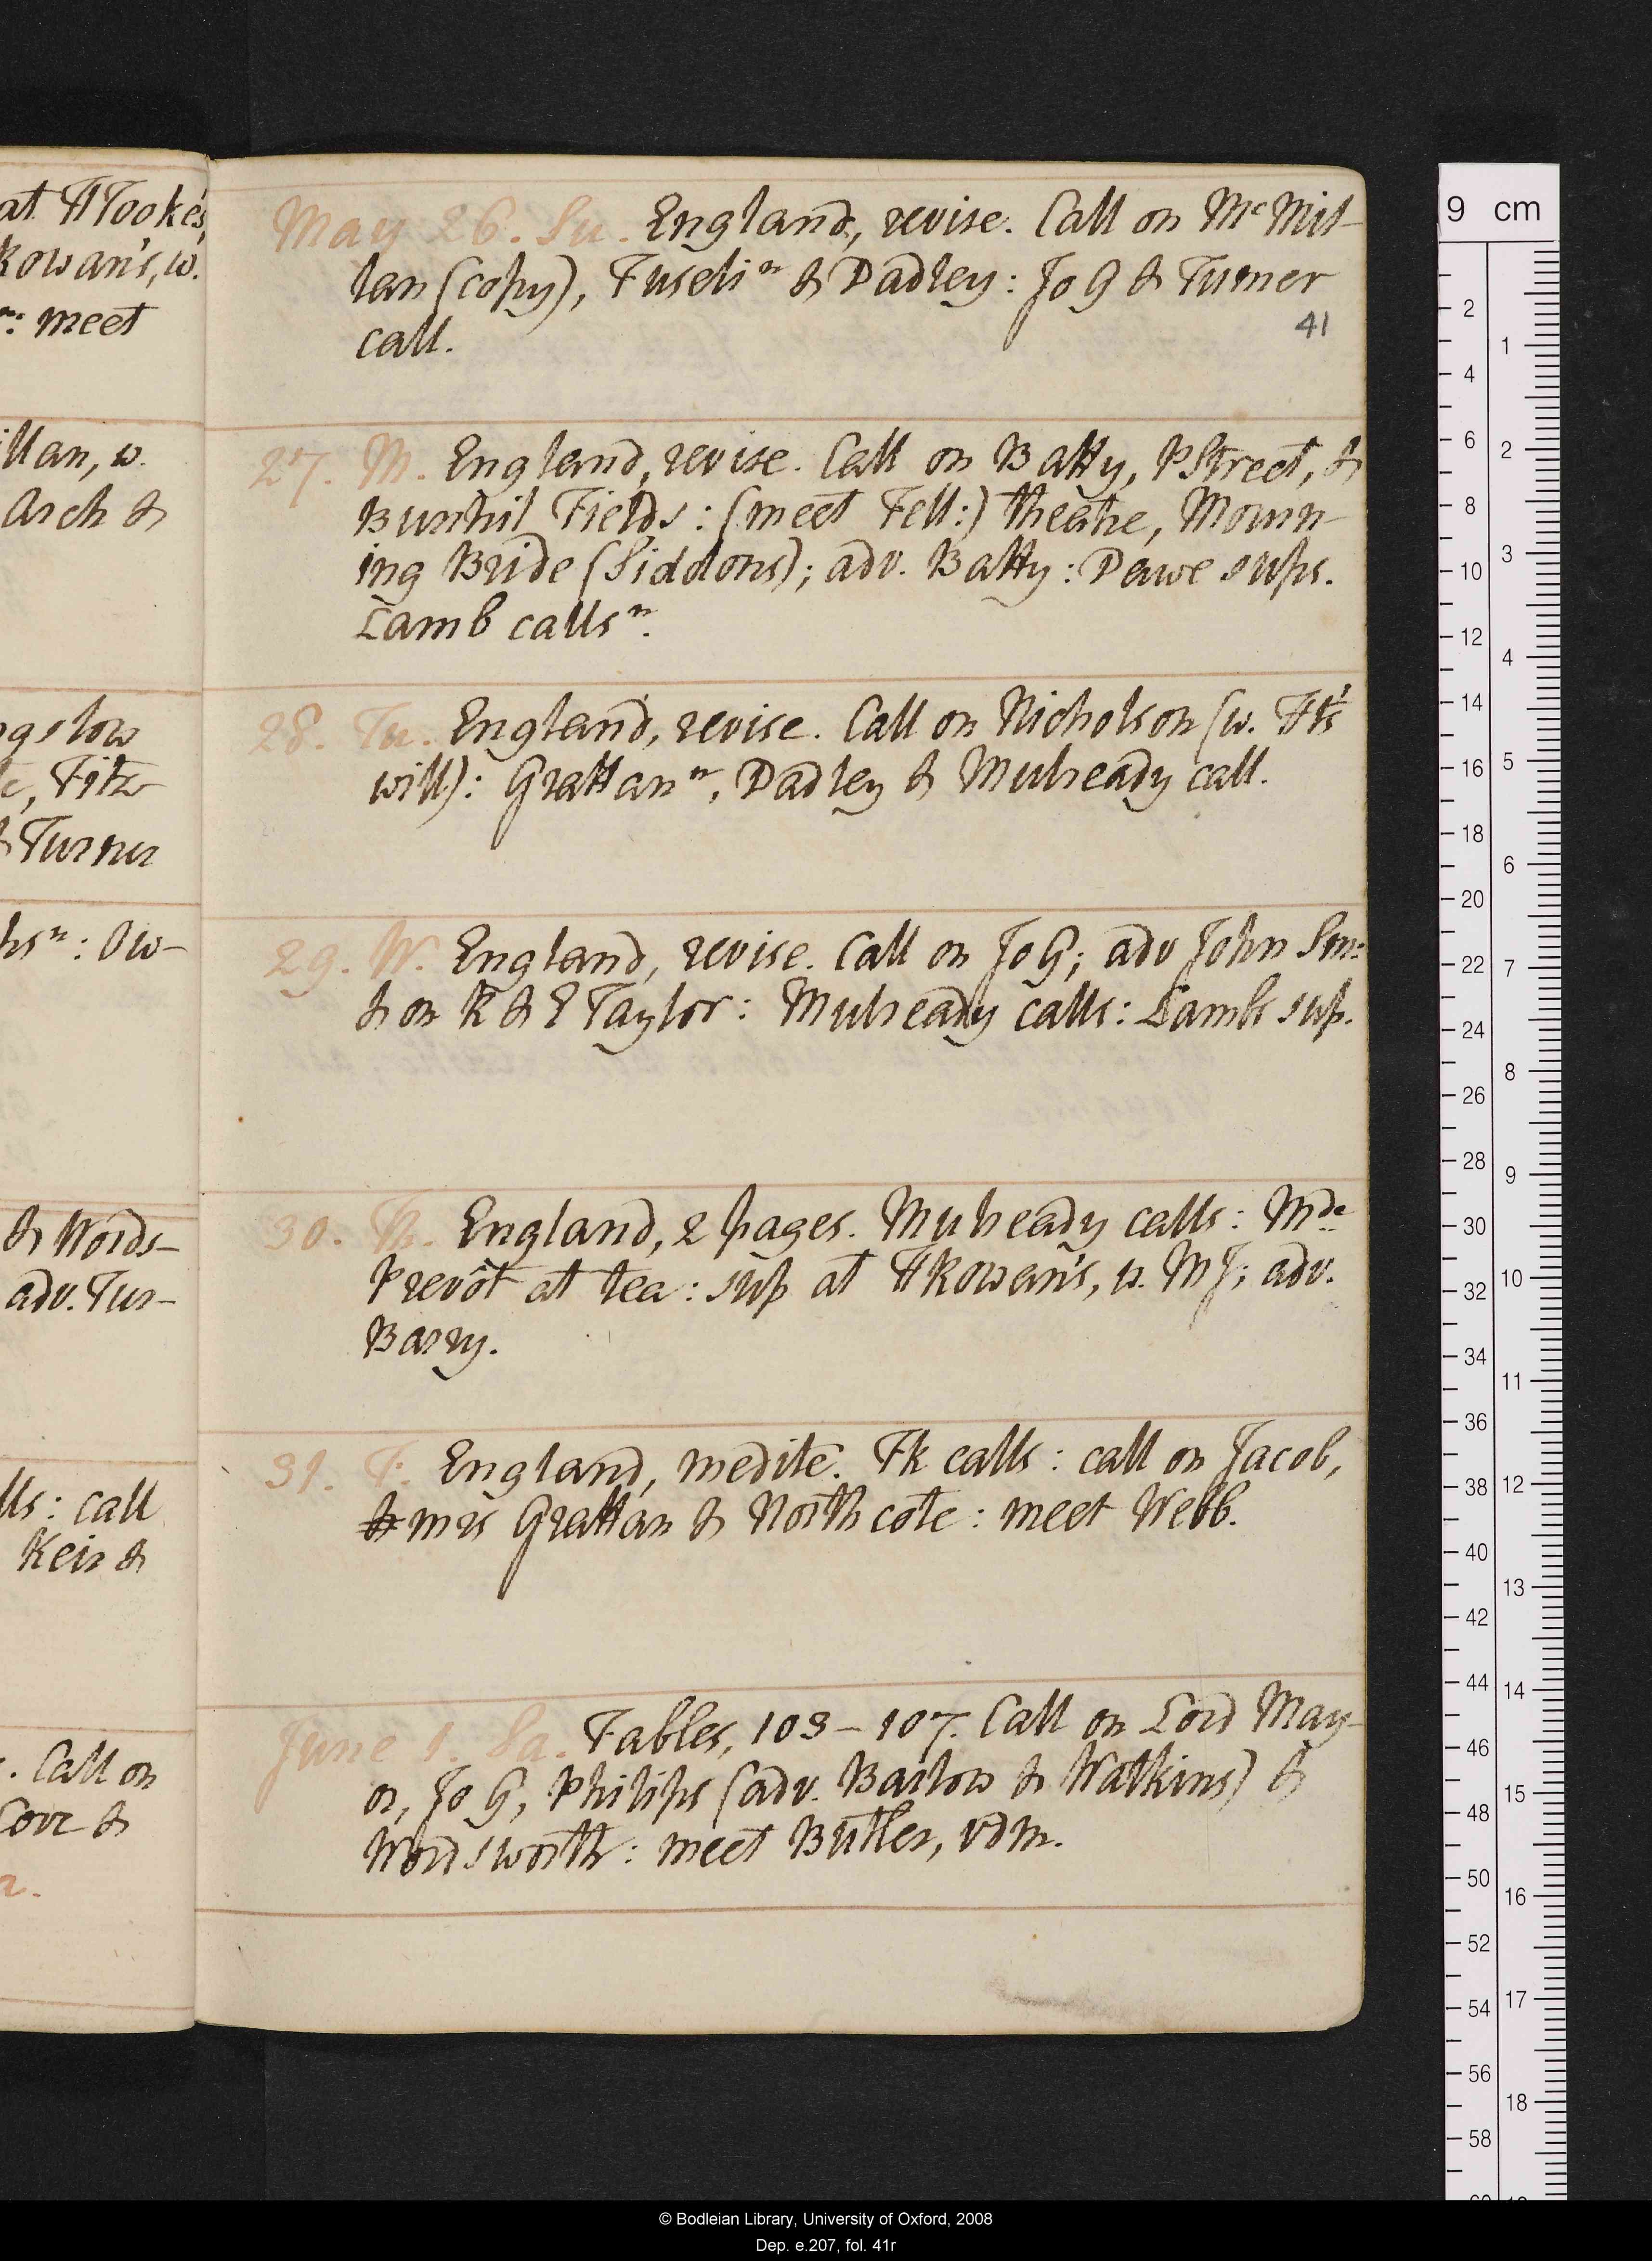 at HTooke's,
Rowan's, w.
n: meet
illan, w.
Arch &
gslow
Fitz-
& Turner
hs n: Ow-
& Words-
adv. Tur-
lls: call
Keir &
. Call on
Cove &
r.
May 26. Su. England, revise. Call on McMil-
lan (copy), Fuseli n & Dadley: Jo G & Turner
call.
41
27. M. England, revise. Call on Batty, P Street, &
Bunhil Fields: (meet Fell:) theatre, Mourn-
ing Bride (Siddons); adv. Batty: Dawe sups.
Lamb calls n.
28. Tu. England, revise. Call on Nicholson (w. Ht's
will): Grattan n, Dadley & Mulready call.
29. W. England, revise. Call on Jo G; adv John Sm:
& on R & E Taylor: Mulready calls: Lambs sup.
30. Th. England, 2 pages. Mulready calls: Mde
Prevôt at tea: sup at HRowan's, w. MJ; adv.
Barry.
31. F. England, medite. Fk calls: call on Jacob,
& mrs Grattan & Northcote: meet Webb.
June 1. Sa. Fables, 103-107. Call on Lord May-
or, Jo G, Philips (adv. Barlow & Watkins) &
Wordsworth: meet Butler, vdm.
9 cm
2
4
6
8
10
12
14
16
18
20
22
24
26
28
30
32
34
36
38
40
42
44
46
48
50
52
54
56
58
1
2
3
4
5
6
7
8
9
10
11
12
13
14
15
16
17
18
© Bodleian Library, University of Oxford, 2008
Dep. e.207, fol. 41r